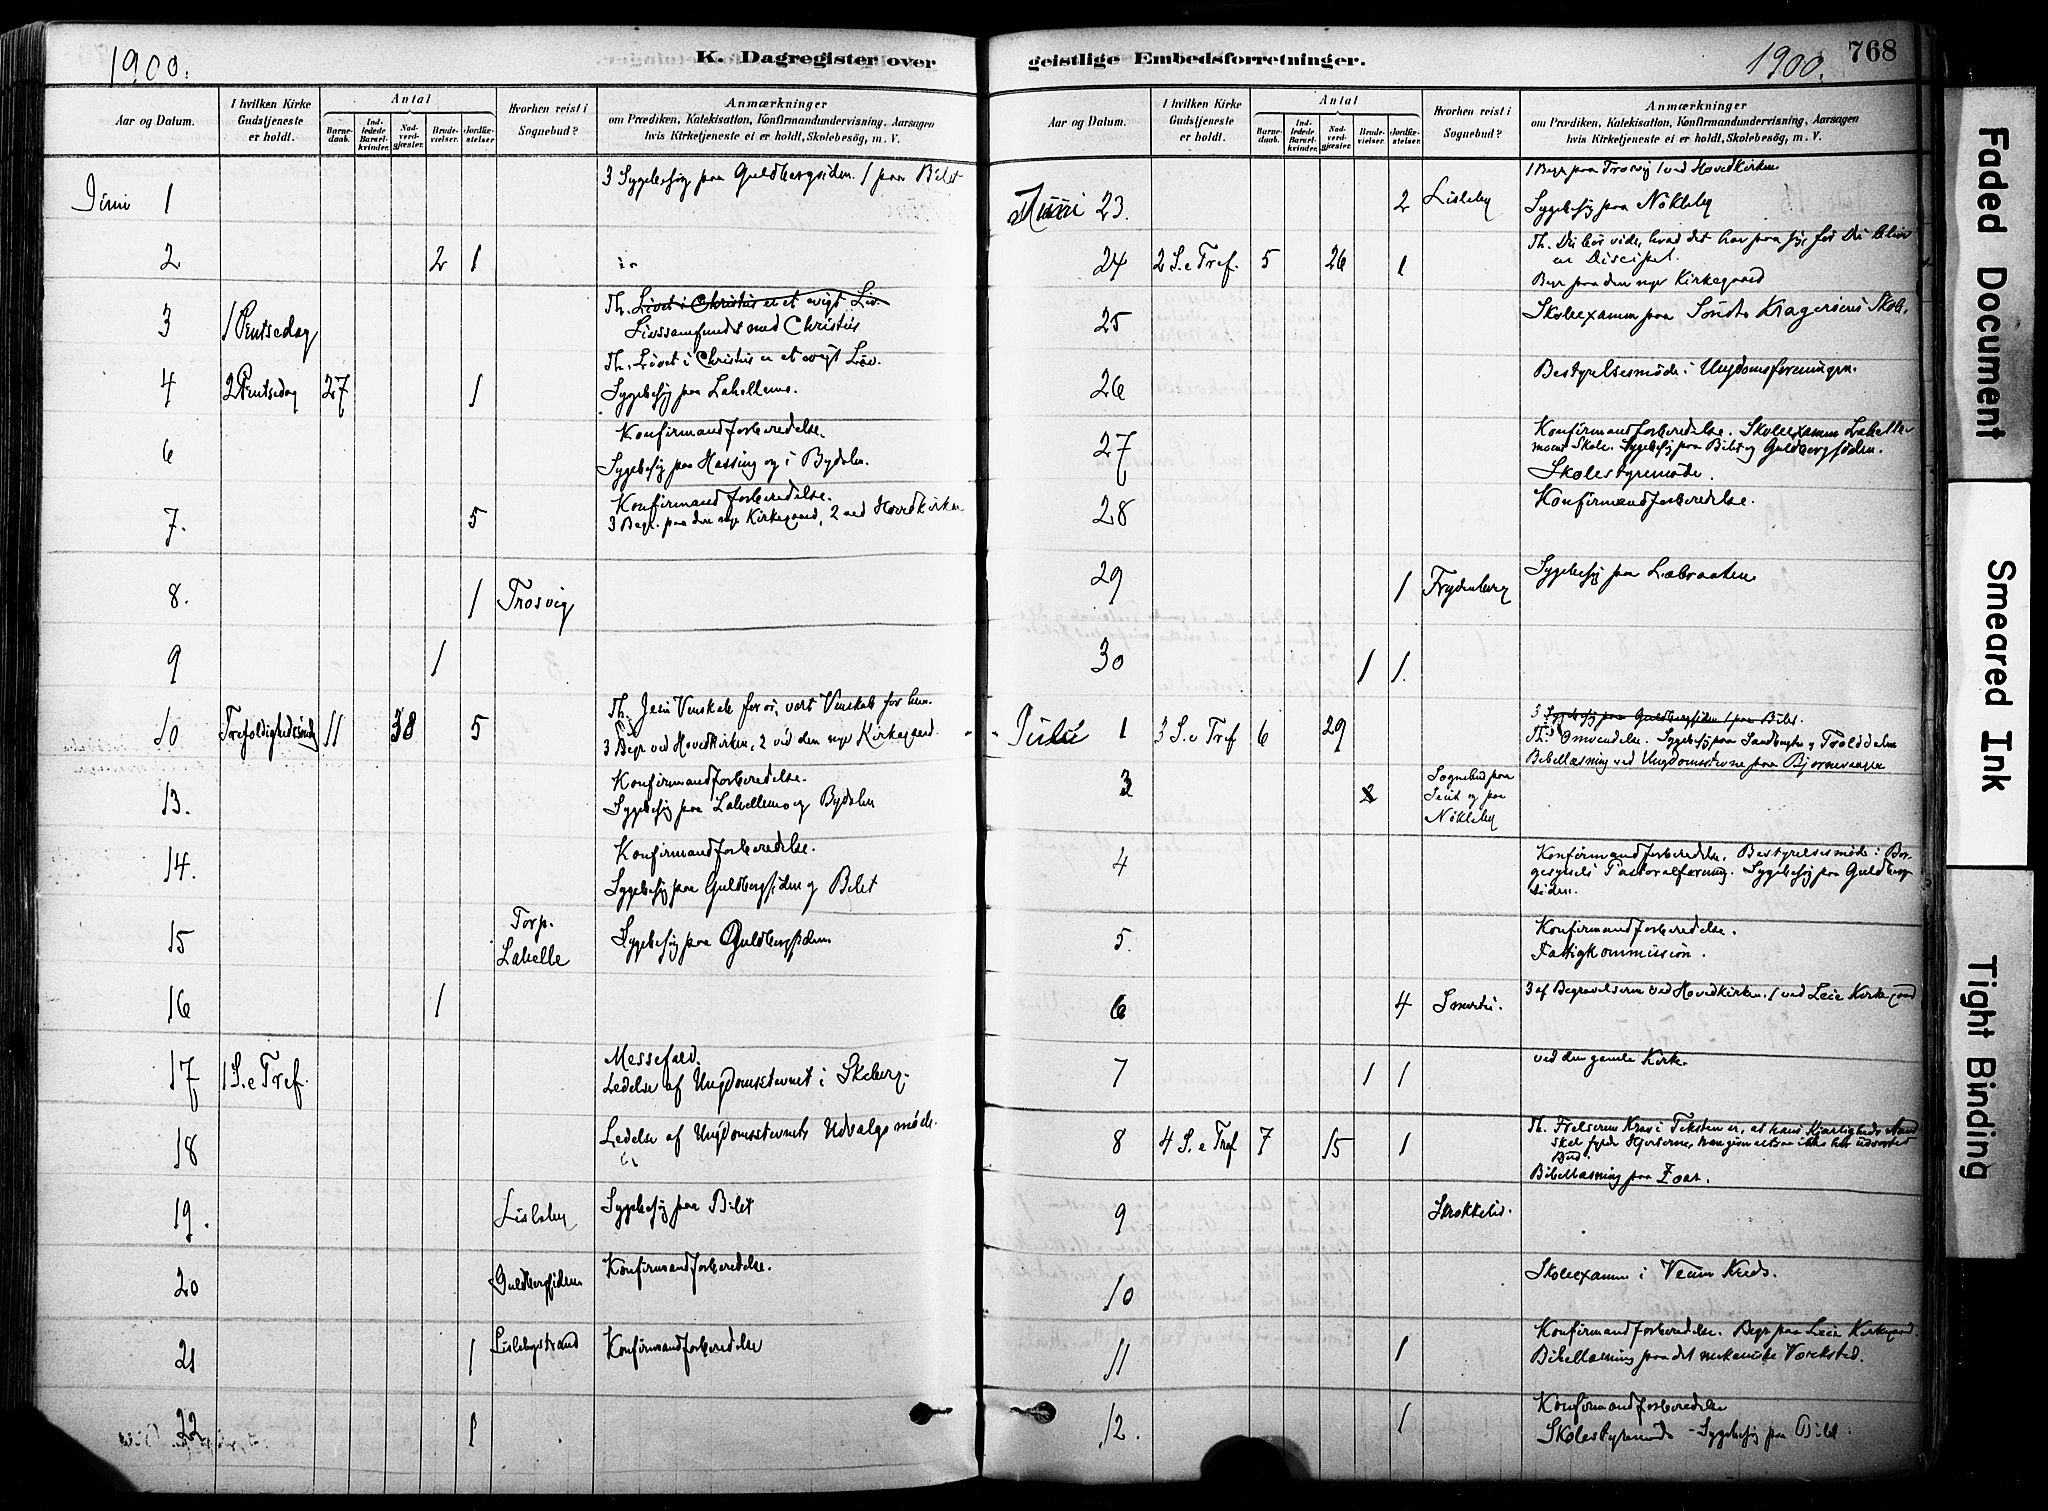 1900.
K. Dagregister over
Aar og Datum.
I hvilken Kirke Gudstjeneste er holdt.
Antal
Barnedaab.
Indledede Barselkvinder.
Nadverdgjæster.
Brudevielser.
Jordfæstelser
Hvorhen reist i Sognebud?
Anmærkninger
om Prædiken, Katekisation, Konfirmandundervisning, Aarsagen
hvis Kirketjeneste ei er holdt, Skolebesøg, m. V.
Juni 1 3 Sygebesøg paa Guldbergsiden. 1 paa Bilet
2 2 1
3 1 Pintsedag Th. Livet i Christus er et evigt Liv.
Livssamfundet med Christus
4 2 Pintsedag 27 1 Th. Livet i Christus er et evigt Liv.
Sygebesøg paa Lahellemo.
6 Konfirmandforberedelse.
Sygebesøg paa Hassing og i Bydalen.
7. 5 Konfirmandforberedelse.
3 Begr. paa den nye Kirkegaard, 2 ved Hovedkirken
8. 1 Trosvig
9 1
10 Trefoldighedssøndag 11 38 5 Th. Jesu Venskab for os, vort Venskab for ham.
3 Begr ved Hovedkirken, 2 ved den nye Kirkegaard.
13. Konfirmandforberedelse.
Sygebesøg paa Lahellemo og Bydalen
14. Konfirmandforberedelse.
Sygebesøg paa Guldbergsiden og Bilet
15 Torp. Lahelle Sygebesøg paa Guldbergsiden
16 1
17 1 S. e Tref. Messefald.
Ledelse af Ungdomsstevnet i Skeberg.
18 Ledelse af Ungdomsstevnets Udvalgsmøde.
19. Lisleby Sygebesøg paa Bilet
20 Guldbergsiden Konfirmandforberedelse.
21 1 Lislebystrand Konfirmandforberedelse
22 1
geistlige Embedsforretninger.
1900.
768
Aar og Datum.
I hvilken Kirke Gudstjeneste er holdt.
Antal
Barnedaab.
Indledede Barselkvinder.
Nadverdgjæster.
Brudevielser.
Jordfæstelser.
Hvorhen reist i Sognebud?
Anmærkninger
om Prædiken, Katekisation, Konfirmandundervisning, Aarsagen
hvis Kirketjeneste ei er holdt, Skolebesøg, m. V.
1 Begr paa Trosvig 1 ved Hovedkirken
Juni 23. 2 Lisleby Sygebesøg paa Nökleby
24 2 S. e Tref. 5 26 1 Th. Du bør vide, hvad det har paa sig, før Du bliver
en Discipel.
Begr paa den nye Kirkegaard
25 Skoleexamen paa Söndre Kragerøens Skole.
26 Bestyrelsesmøde i Ungdomsforeningen.
27 Konfirmandforberedelse. Skoleexamen Lahelle-
moens Skole. Sygebesøg paa Bilet og Guldbergsiden.
Skolestyremøde.
28 Konfirmandforberedelse.
29 1 Frydenberg Sygebesøg paa Labraaten
30 1 1.
Juli 1 3 S. e Tref 6 29 3 Sygebesøg paa Guldbergsiden 1 paa Bilet.
Th. Omvendelse. Sygebesøg paa Sandbugten og Trolddalen
Bibellæsning ved Ungdomsstevne paa Bjørnevangen
3 2 Sognebud paa
og paa
Nökleby
4 Konfirmandforberedelse. Bestyrelsesmøde i Bor-
gesyssels Pastoralforening. Sygebesøg paa Guldberg-
siden.
5. Konfirmandforberedelse.
Fattigkommission.
6 4 Smertu. 3 af Begravelserne ved Hovedkirken. 1 ved Leie Kirkegaard
7 1 1 ved den gamle Kirke.
8 4 S. e Tref 7 15 1 Th. Frelserens Krav i Teksten er, at hans Kjærligheds Aand
skal fylde Hjerterne,
Bud.
Bibellæsning paa Zoar.
9 Strokkelid.
10 Skoleexamen i Veum Kreds.
11 1 Konfirmandforberedelse. Begr paa Leie Kirkegaard.
Bibellæsning paa det mekaniske Værksted.
12. 1 Konfirmandforberedelse
Skolestyremøde - Sygebesøg paa Bilet
Faded Document
Smeared Ink
Tight Binding